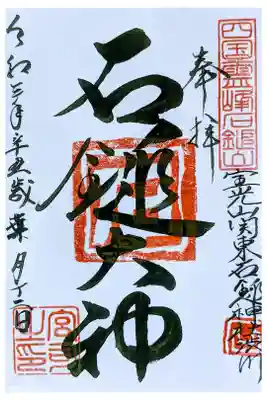 四国靈峰石鎚山
奉拝
宝光山関東石鎚神社
石鎚大神
令和三年辛丑歳葉月十二日